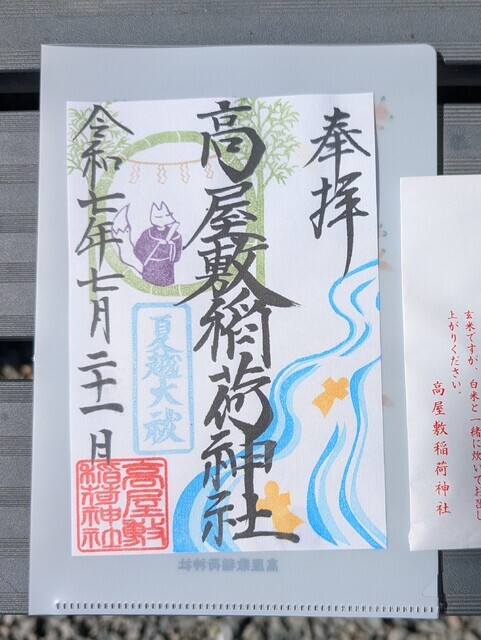 奉拝
高屋敷稲荷神社
令和七年七月二十一日
夏越大祓
高屋敷
稲荷神社
高屋敷稲荷神社
玄米ですが、白米と一緒に炊いてお召し
上がりください。
高屋敷稲荷神社